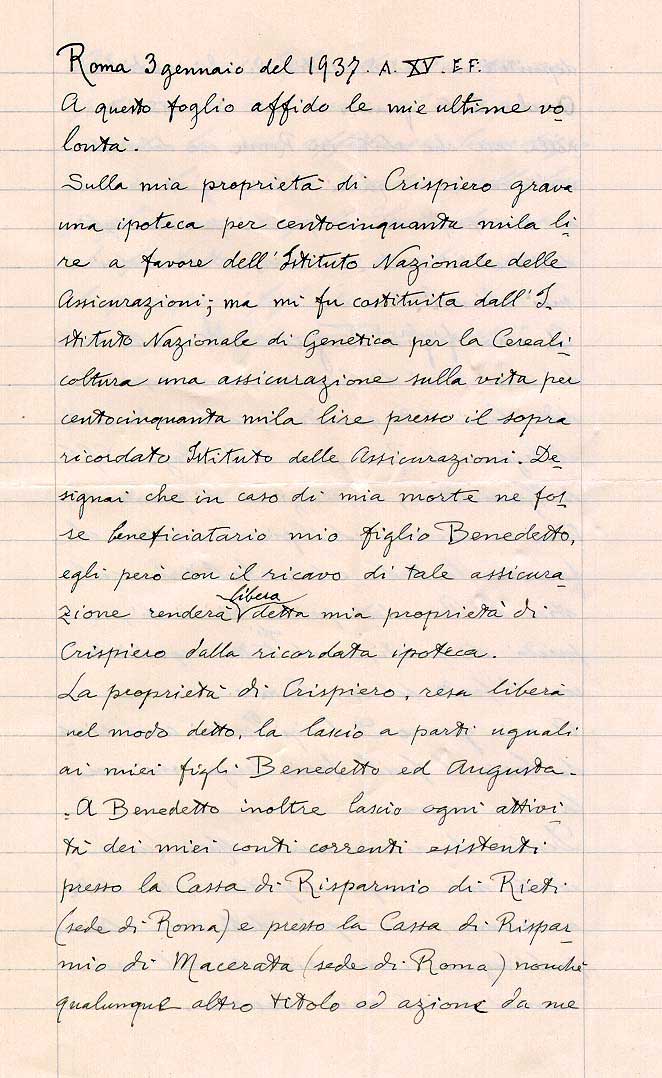 Roma 3 gennaio del 1937. A. XV. E F.
A questo foglio affido le mie ultime vo
lontà.
Sulla mia proprietà di Crispiero grava
una ipoteca per centocinquanta mila li
re a favore dell'Istituto Nazionale delle
Assicurazioni; ma mi fu costituita dall'I
stituto Nazionale di Genetica per la Cereali
coltura una assicurazione sulla vita per
centocinquanta mila lire presso il sopra
ricordato Istituto delle Assicurazioni. De
signai che in caso di mia morte ne fos
se beneficiatario mio figlio Benedetto,
egli però con il ricavo di tale assicura
libera
zione renderà detta mia proprietà di
Crispiero dalla ricordata ipoteca.
La proprietà di Crispiero, resa libera
nel modo detto, la lascio a parti uguali
ai miei figli Benedetto ed Augusta.
= A Benedetto inoltre lascio ogni attivi
tà dei miei conti correnti esistenti
presso la Cassa di Risparmio di Rieti
(sede di Roma) e presso la Cassa di Rispar
mio di Macerata (sede di Roma) nonchè
qualunque altro titolo od azione da me